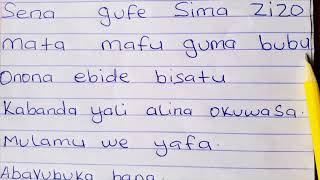 Sena gufe Sima zizo
mata mafu guma bubu
Onona ebide bisatu
Kabanda yali alina okuwasa.
Mulamu we yafa.
Abavubuka bana